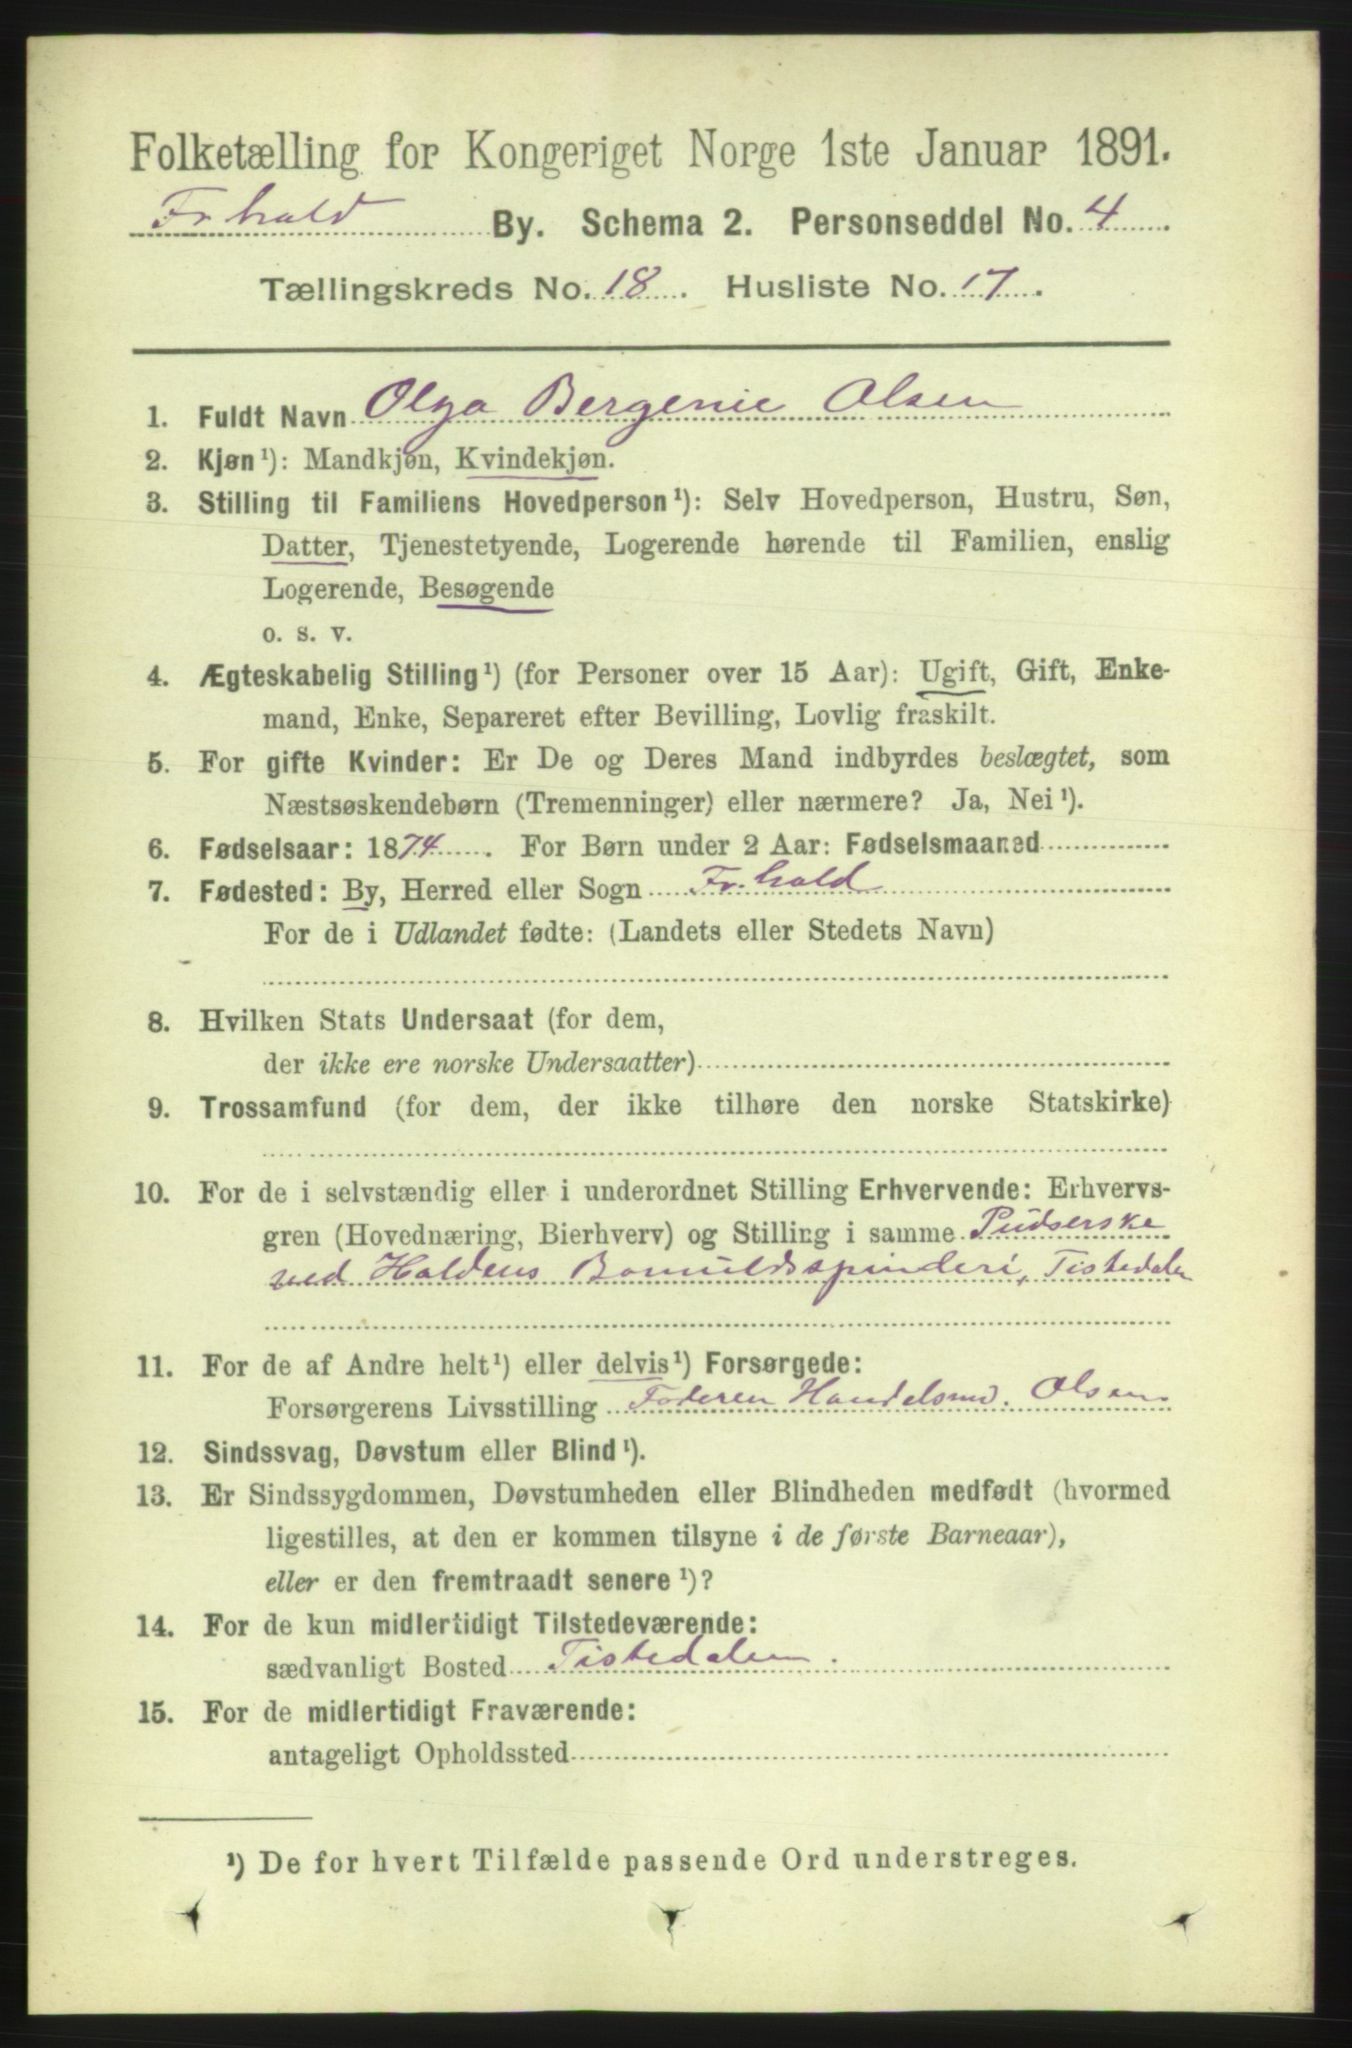 Folketælling for Kongeriget Norge 1ste Januar 1891.
Fr.hald By. Schema 2. Personseddel No. 4
Tællingskreds No. 18. Husliste No. 17.
1. Fuldt Navn Olga Bergenie Olsen
2. Kjøn¹): Mandkjøn, Kvindekjøn.
3. Stilling til Familiens Hovedperson¹): Selv Hovedperson, Hustru, Søn,
Datter, Tjenestetyende, Logerende hørende til Familien, enslig
Logerende, Besøgende
o. s. v.
4. Ægteskabelig Stilling¹) (for Personer over 15 Aar): Ugift, Gift, Enke-
mand, Enke, Separeret efter Bevilling, Lovlig fraskilt.
5. For gifte Kvinder: Er De og Deres Mand indbyrdes beslægtet, som
Næstsøskendebørn (Tremenninger) eller nærmere? Ja, Nei¹).
6. Fødselsaar: 1874. For Børn under 2 Aar: Fødselsmaaned
7. Fødested: By, Herred eller Sogn Fr.hald
For de i Udlandet fødte: (Landets eller Stedets Navn)
8. Hvilken Stats Undersaat (for dem,
der ikke ere norske Undersaatter)
9. Trossamfund (for dem, der ikke tilhøre den norske Statskirke)
10. For de i selvstændig eller i underordnet Stilling Erhvervende: Erhvervs-
gren (Hovednæring, Bierhverv) og Stilling i samme Pudserske
ved Haldens Bomuldsspinderi, Tistedalen
11. For de af Andre helt¹) eller delvis¹) Forsørgede:
Forsørgerens Livsstilling Faderen Handelsmd. Olsen
12. Sindssvag, Døvstum eller Blind¹).
13. Er Sindssygdommen, Døvstumheden eller Blindheden medfødt (hvormed
ligestilles, at den er kommen tilsyne i de første Barneaar),
eller er den fremtraadt senere¹)?
14. For de kun midlertidigt Tilstedeværende:
sædvanligt Bosted Tistedalen.
15. For de midlertidigt Fraværende:
antageligt Opholdssted
¹) De for hvert Tilfælde passende Ord understreges.